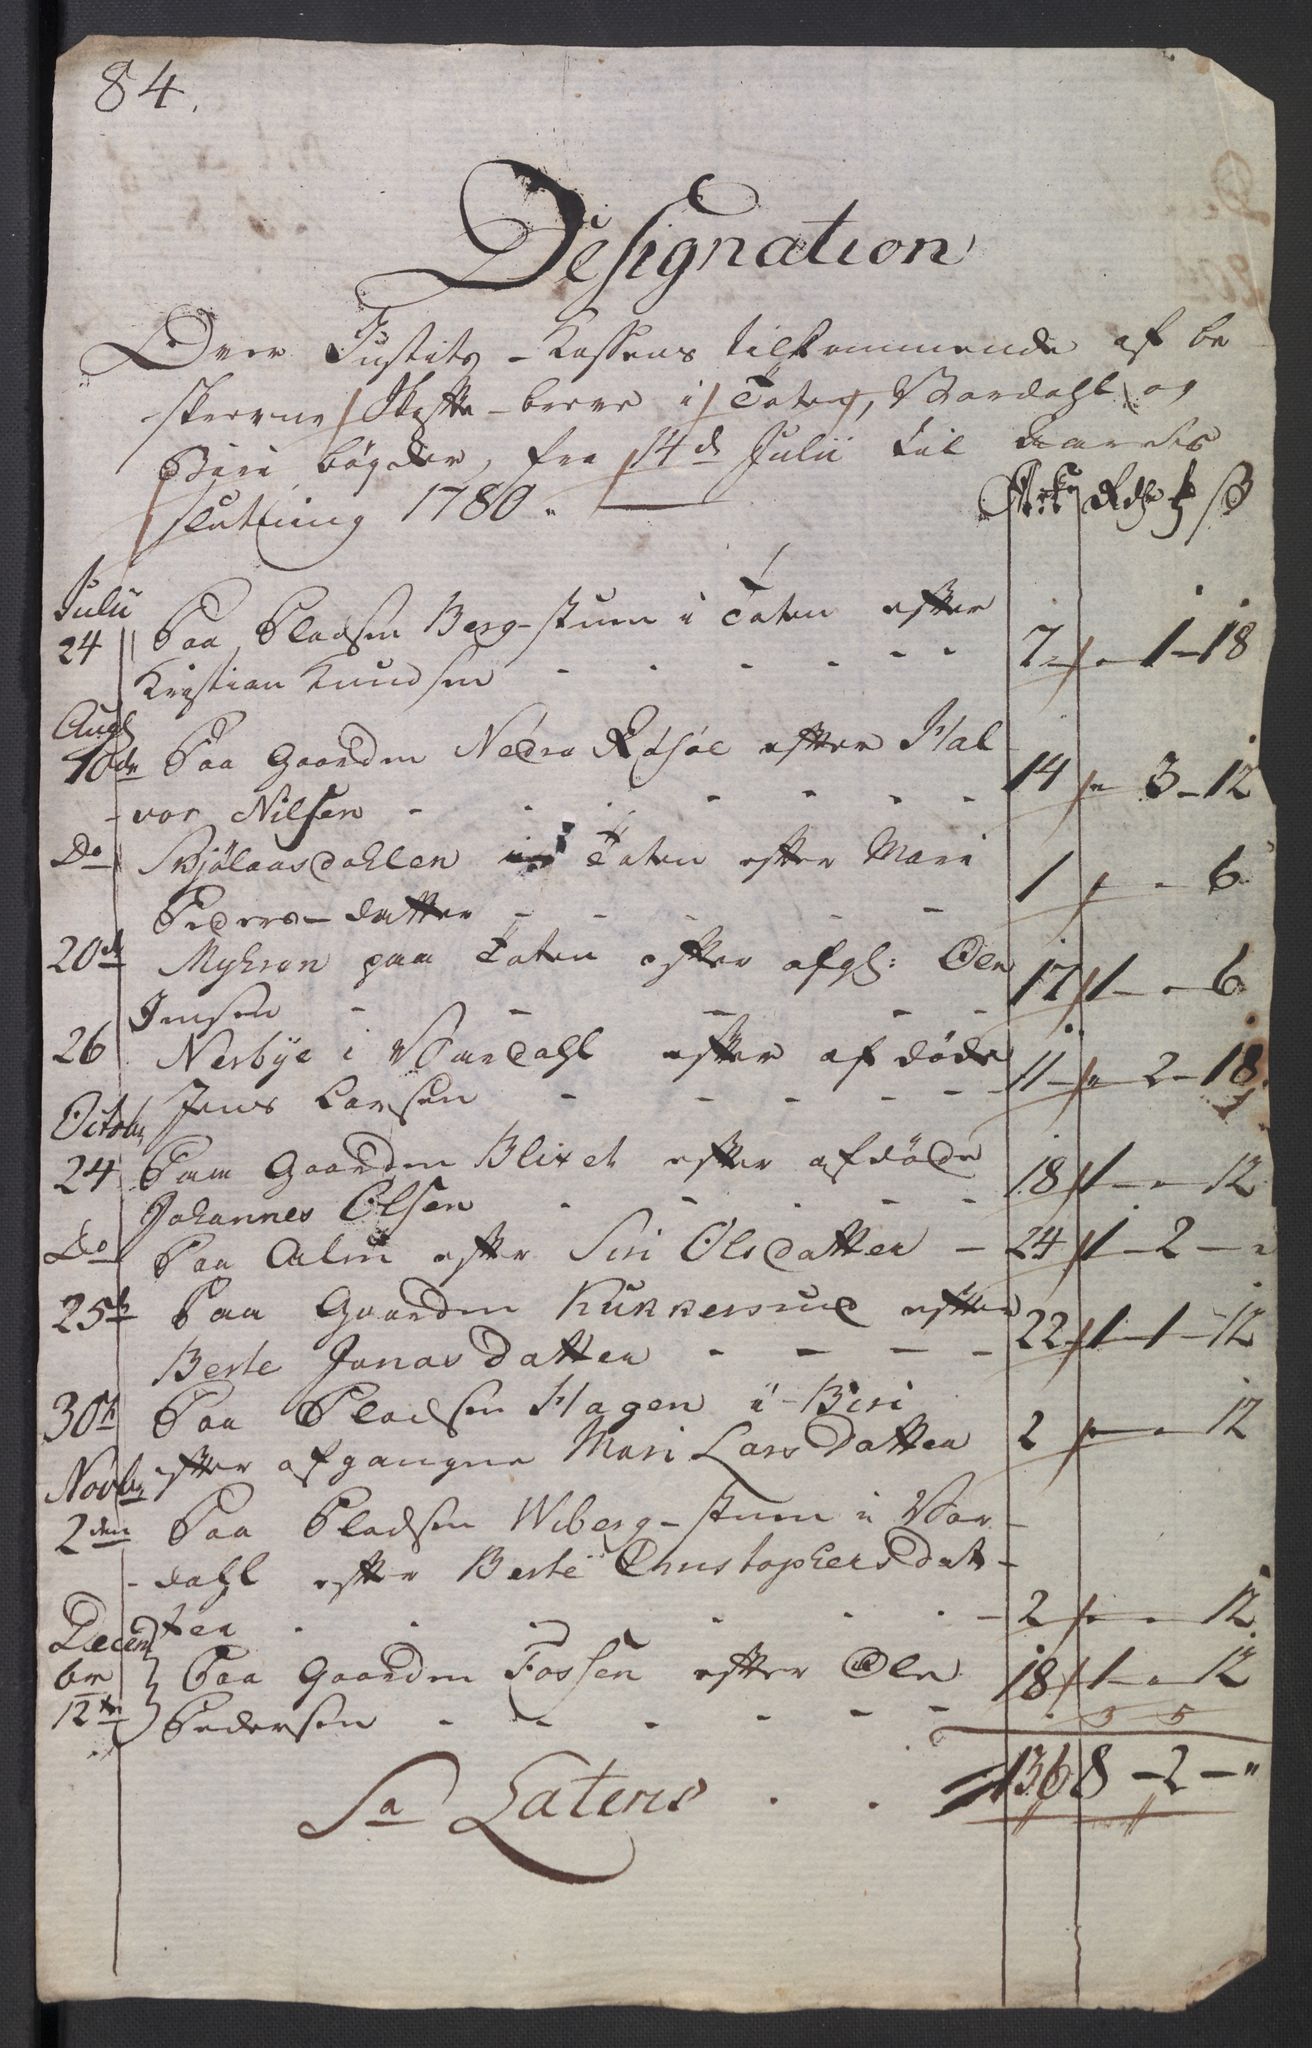 84.
Designation
Over Justits-Kassens tilkommende af be
skrevne Skifte-breve i Toten, Wardahl og
Biri bøyder, fra 14d Julii til Aarets
slutning 1780.
Arkr Rdlr # ß
Julii
24 Paa Pladsen Berg-stuen i Toten efter
Kristian Knudsen - - - - - - 7 - " - 1 - 18
Augs
10de Paa Gaarden Nedra Røisøe efter Hal
-vor Nilsen - - - - - - - 14 " 3 - 12
Do Skjølaasdahlen i Toten efter Mari
Peders-datter - - - - - 1 " - " 6
20de Myhren paa Toten efter afg: Ole
Jensen - - - - - 17 1 - " - 6
26 Nerbye i Wardahl efter afdøde
Jens Larsen - - - - - - 11 - " 2 - 18
Octobr
24 Paa Gaarden Blixet efter afdøde
Johannes Olsen - - - - - 18 1 - " - 12
Do Paa Alm efter Siri Olsdatter - 24 1 - 2 - "
25de Paa Gaarden Kukkersrud efter
Berte Jonasdatter - - - - 22 1 - 1 - 12
30te Paa Pladsen Hagen i Biri
efter afgangne Mari Larsdatter 2 " - " 12
Novbr
2den Paa Pladsen Wiberg-stuen i War-
-dahl efter Berte Christophersdat-
ter - - - - - - 2 " - " 12
Decem
br
12te Paa Gaarden Fossen efter Ole
Pedersen - - - - - - 18 1 - " 12
3 5
Sa Lateris . . 136 8 - 2 - "